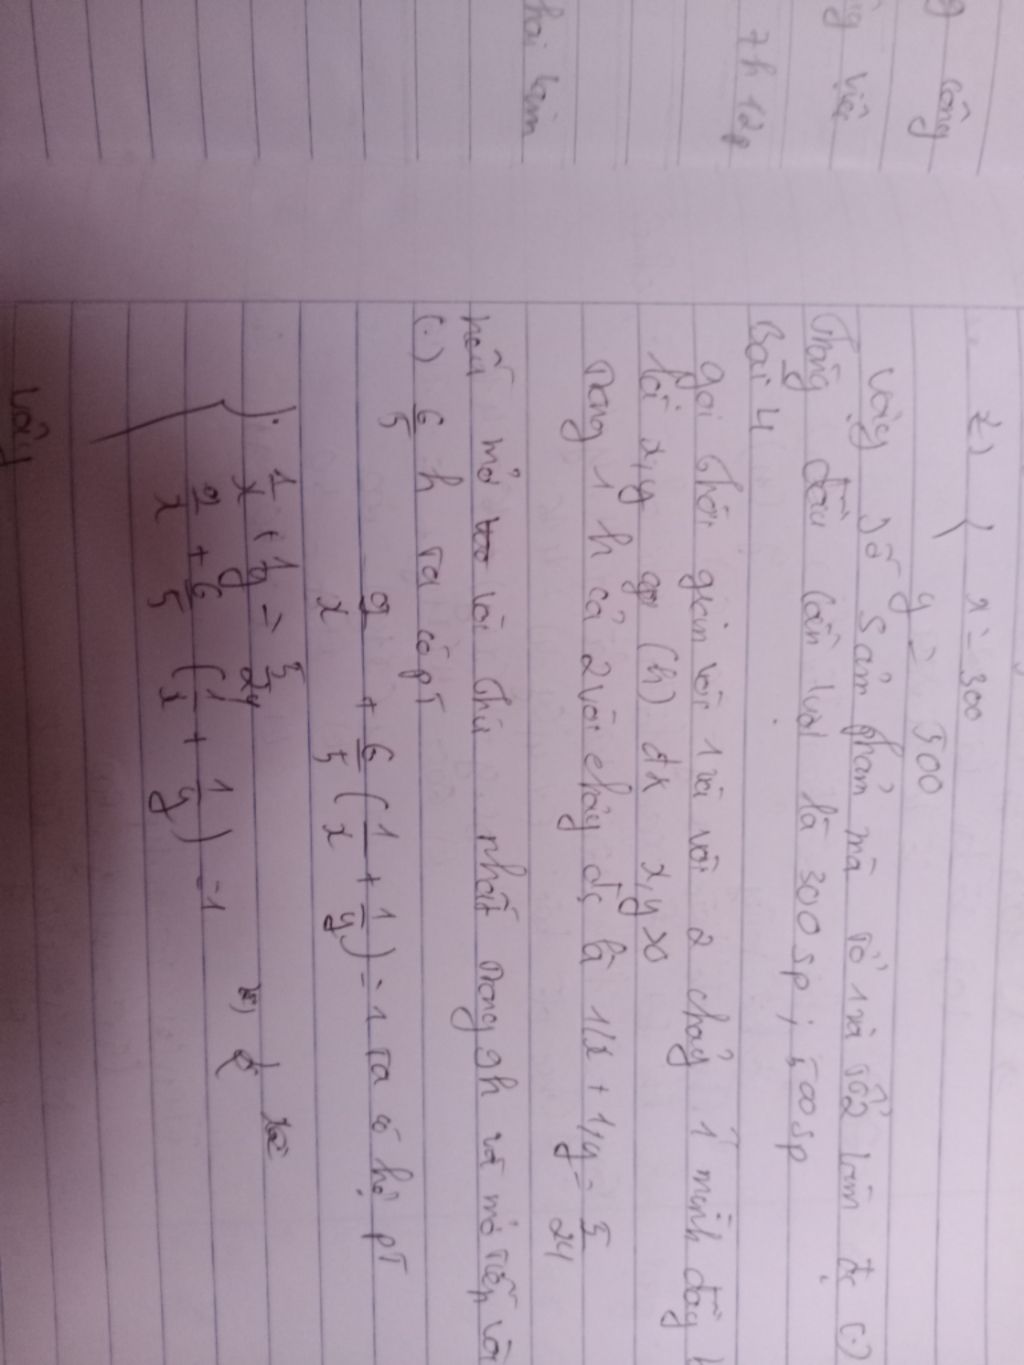 g công
ng việc
7h 12p
hai làm
=> { x = 300
y = 500
Vậy số sản phẩm mà tổ 1 và tổ 2 làm đc (.)
Tháng đầu lần lượt là 300 sp ; 500 sp
Bài 4
gọi thời gian vòi 1 và vòi 2 chảy 1 mình đầy
x, y (h) đk x, y >0
Trong 1 h cả 2 vòi chảy đc là 1/x + 1/y = 5/24
nếu mở vòi thứ nhất trong 9h và mở tiếp vòi
(.) 6/5 h ta có pT
9/x + 6/5 (1/x + 1/y) = 1 ta có hệ pT
{ 1/x + 1/y = 5/24
9/x + 6/5 (1/x + 1/y) = 1
Vậy